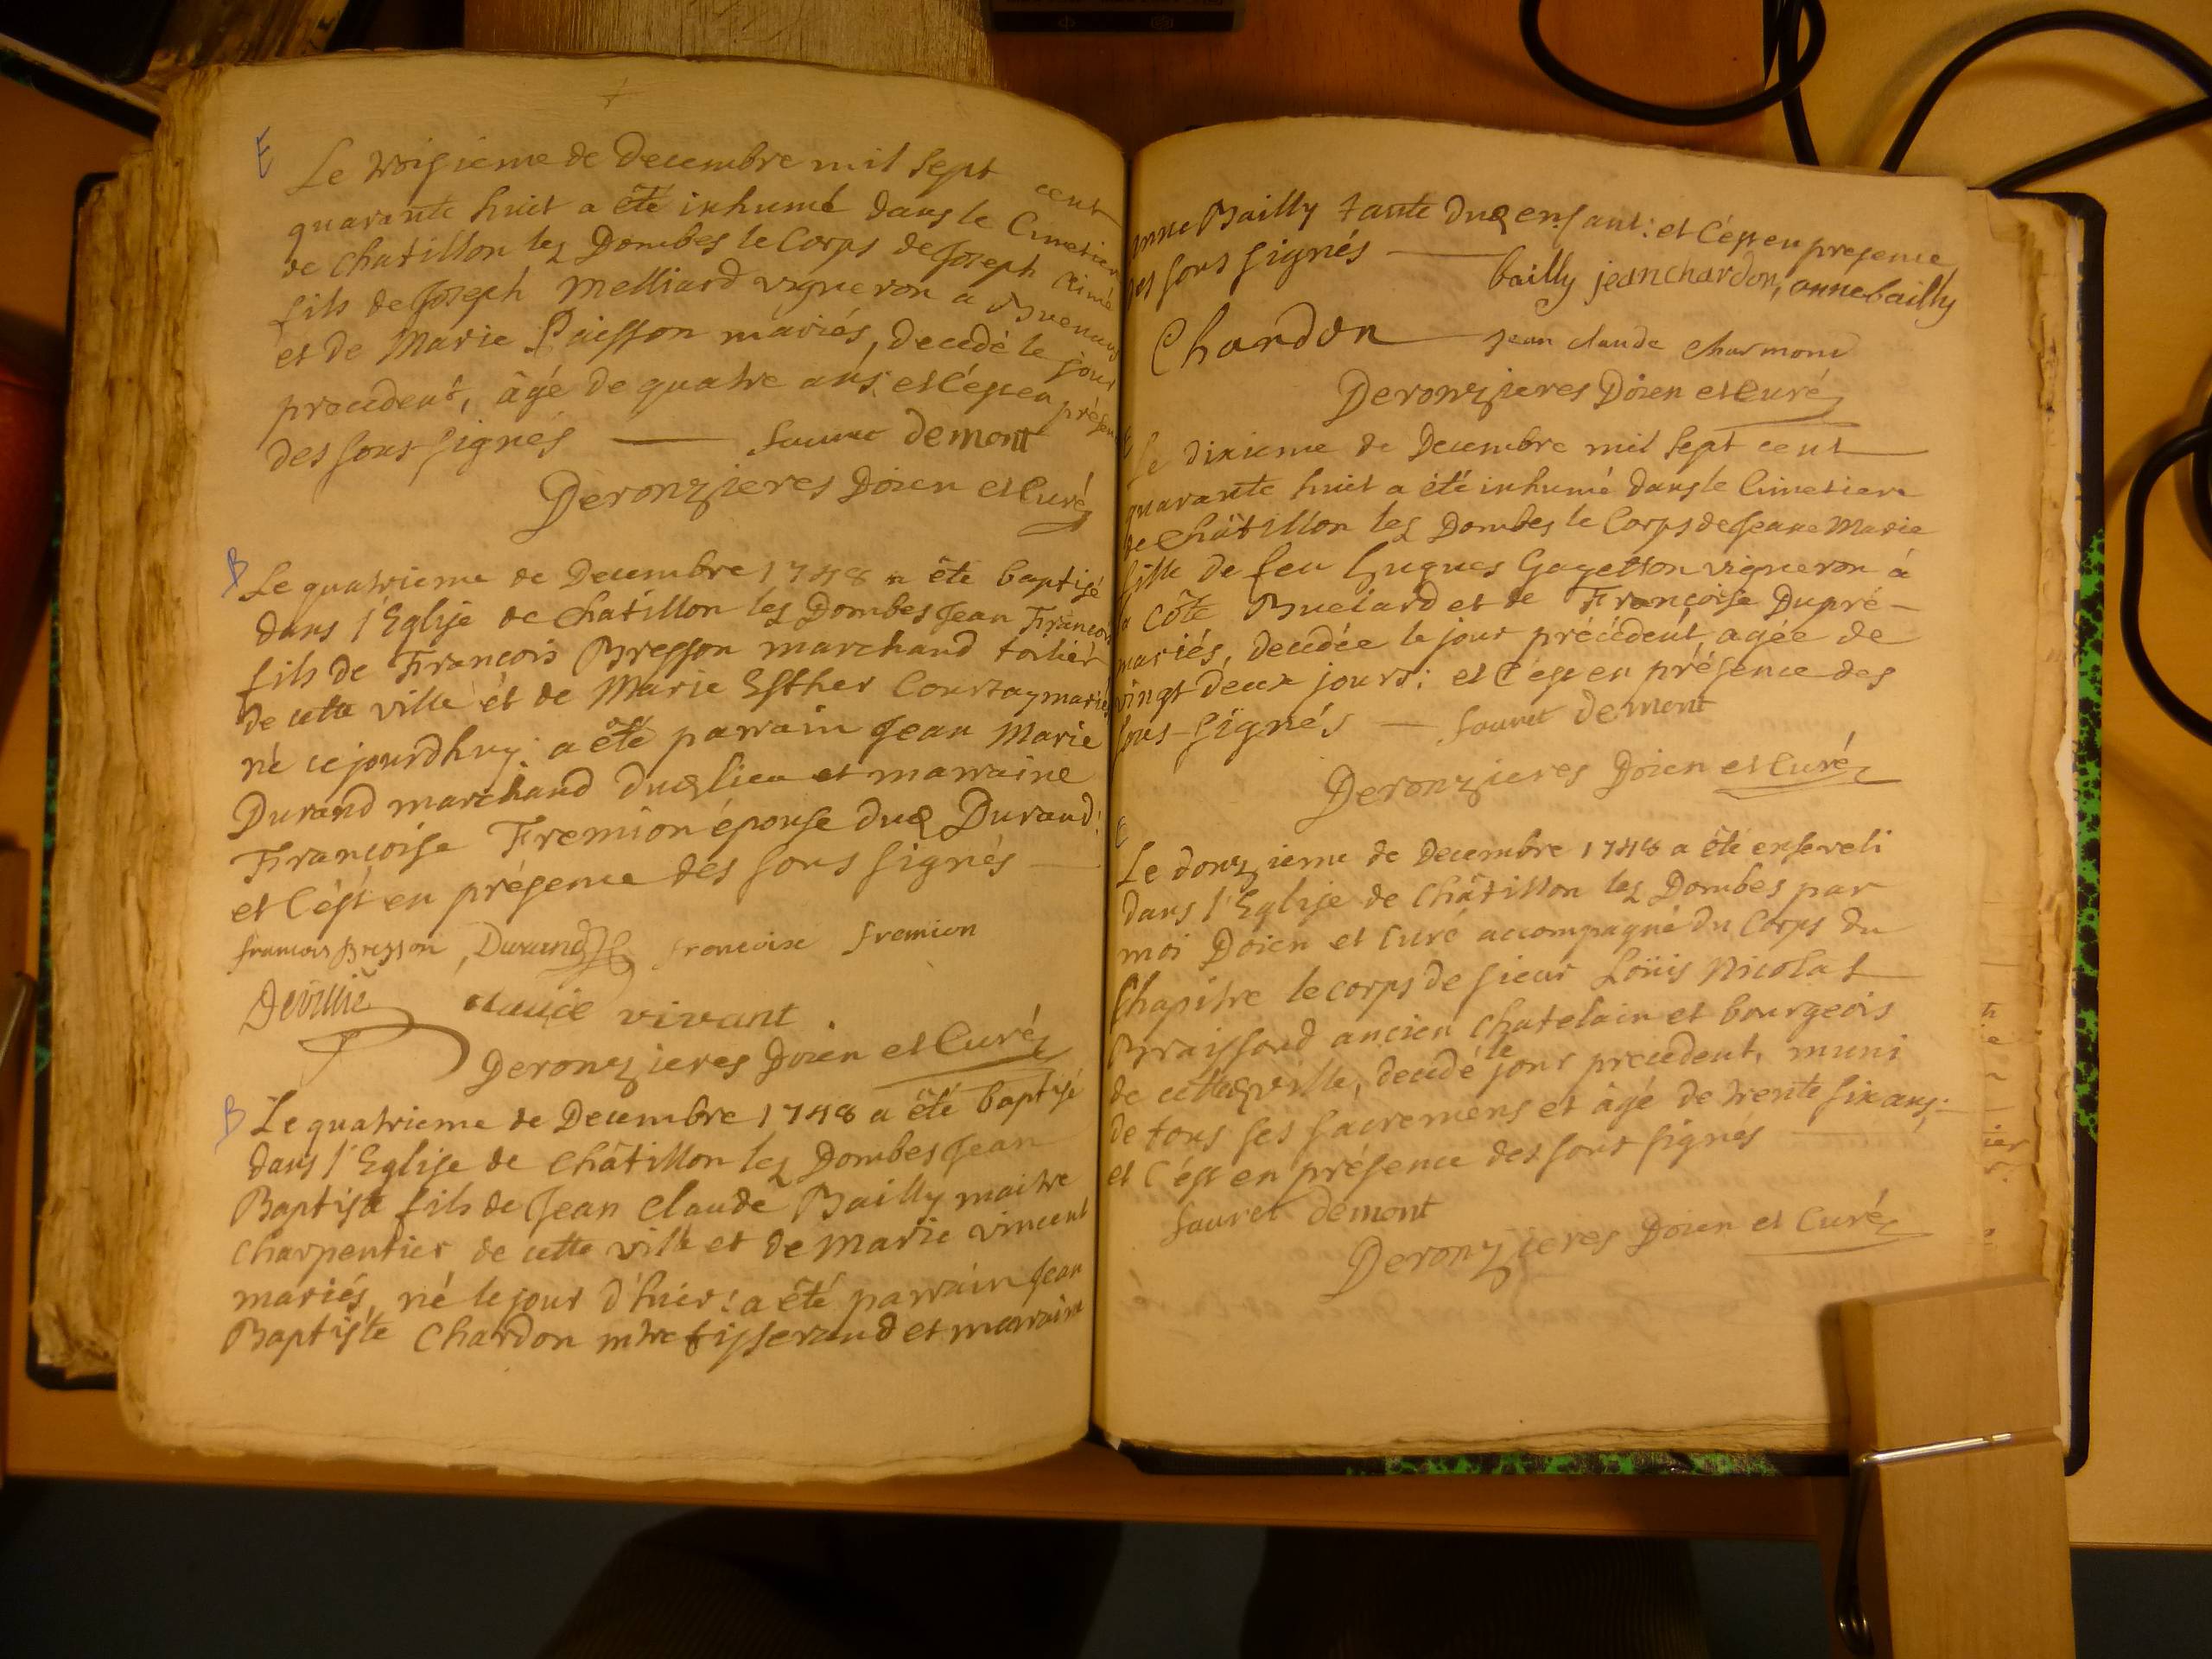 E
Le troisieme de Decembre mil sept cent
quarante huit a êté inhumé dans le Cimetier
de Chatillon les Dombes le Corps de Joseph Aimé
fils de Joseph Melliard vigneron a Buenans
et de Marie Puisson mariés, decedé le jour
precedent, âgé de quatre ans: et c'est en présen
des sous-signés — demont
Deronzieres Doien et Curé
B
Le quatrieme de Decembre 1748 a êté baptisé
dans l'Eglise de Chatillon les Dombes Jean François
fils de François Bresson marchand toilier
de cette ville et de Marie Esther Courtay mariés
né cejourdhuy: a êté parrain Jean Marie
Durand marchand dud lieu et marraine
Françoise Fremion épouse dud Durand:
et c'est en présence des sous signés —
francois Bresson, Durand francoise fremion
Devillie claude vivant
Deronzieres Doien et Curé
B
Le quatrieme de Decembre 1748 a êté baptisé
dans l'Eglise de Châtillon les Dombes Jean
Baptiste fils de Jean Claude Bailly maitre
Charpentier de cette ville et de Marie vincent
mariés, né le jour d'hier: a êté parrain Jean
Baptiste Chardon mtre tisserand et marraine
anne Bailly tante dud enfant: et c'est en presence
des sous signés — bailly jean chardon, anne bailly
Chardon — jean claude charmond
Deronzieres Doien et Curé
Le dixieme de Decembre mil sept cent
quarante huit a été inhumé dans le Cimetiere
de Châtillon les Dombes le Corps de Jeane Marie
fille de feu Hugues Gayetton vigneron à
la Côte Buelard et de Françoise Dupré —
mariés, decedée le jour précédent, agée de
vingt deux jours: et c'est en présence des
sous-signés — sauret demont
Deronzieres Doien et Curé
E
Le douzieme de Decembre 1748 a êté enseveli
dans l'Eglise de Châtillon les Dombes par
moi Doien et Curé accompagné du Corps du
Chapitre le corps de sieur Loüis Nicolas
Braissoud ancien chatelain et bourgeois
de cette ville, decedé le jour precedent, muni
de tous ses sacremens et âgé de trente six ans:
et c'est en présence des sous signés —
Sauret demont
Deronzieres Doien et Curé